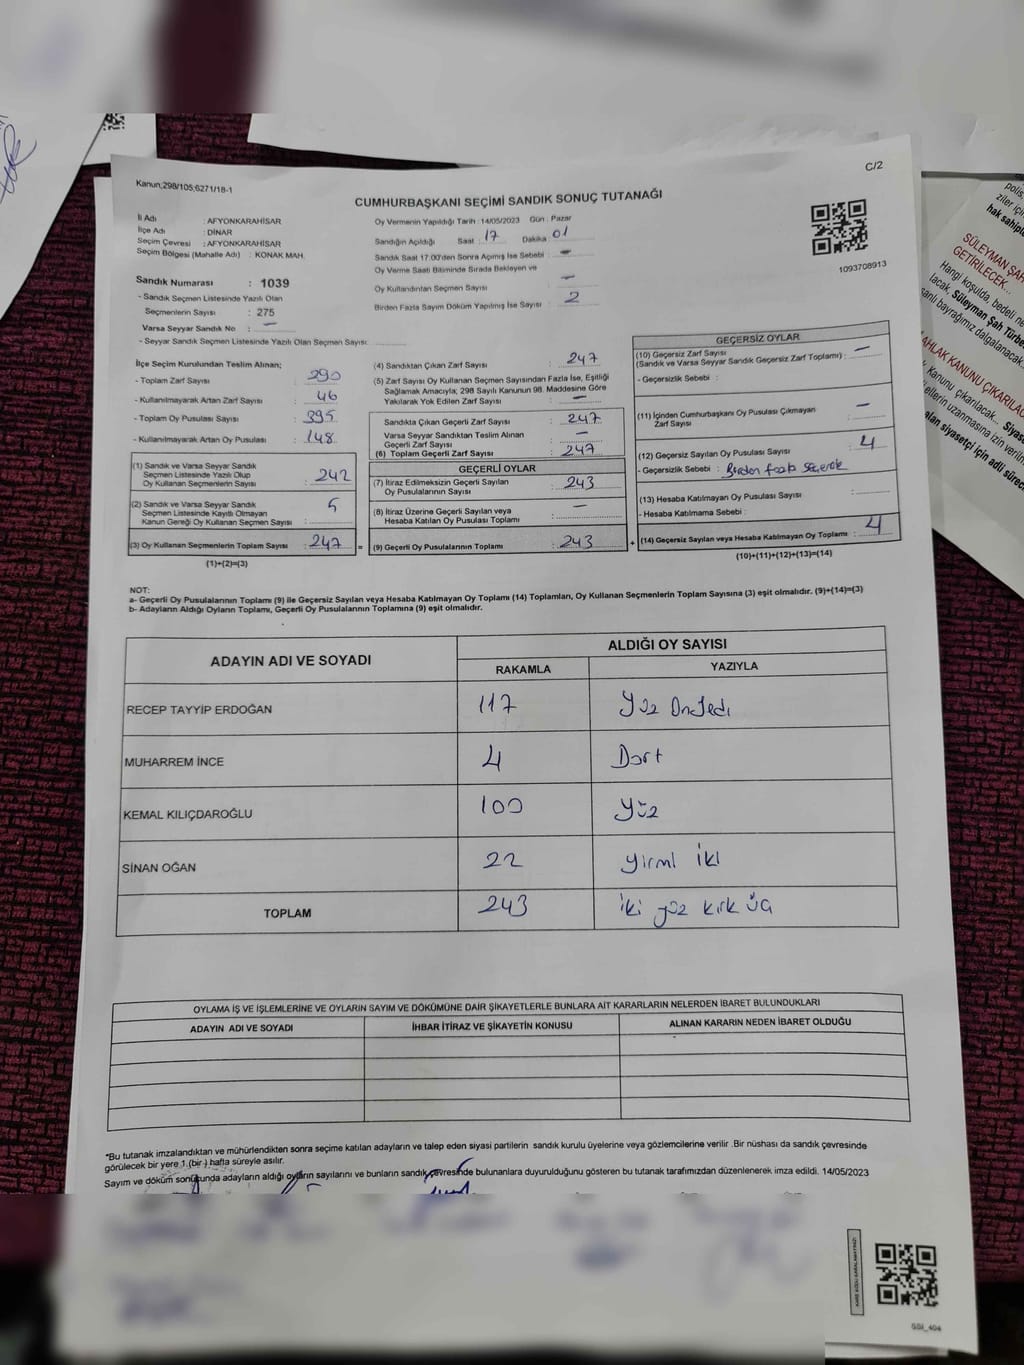 C/2
Kanun;298/105;6271/18-1
CUMHURBAŞKANI SEÇİMİ SANDIK SONUÇ TUTANAĞI
İl Adı : AFYONKARAHİSAR
İlçe Adı : DİNAR
Seçim Çevresi : AFYONKARAHİSAR
Seçim Bölgesi (Mahalle Adı) : KONAK MAH.
Oy Vermenin Yapıldığı Tarih : 14/05/2023 Gün : Pazar
Sandığın Açıldığı Saat : 17 Dakika 01
Sandık Saat 17:00'den Sonra Açımış İse Sebebi : -
Oy Verme Saati Bitiminde Sırada Bekleyen ve
Oy Kullandırılan Seçmen Sayısı : -
Birden Fazla Sayım Döküm Yapılmış İse Sayısı : 2
1093708913
Sandık Numarası : 1039
- Sandık Seçmen Listesinde Yazılı Olan
Seçmenlerin Sayısı : 275
Varsa Seyyar Sandık No : -
- Seyyar Sandık Seçmen Listesinde Yazılı Olan Seçmen Sayısı:
İlçe Seçim Kurulundan Teslim Alınan;
- Toplam Zarf Sayısı : 290
- Kullanılmayarak Artan Zarf Sayısı : 46
- Toplam Oy Pusulası Sayısı : 395
- Kullanılmayarak Artan Oy Pusulası : 148
(1) Sandık ve Varsa Seyyar Sandık
Seçmen Listesinde Yazılı Olup
Oy Kullanan Seçmenlerin Sayısı : 242
(2) Sandık ve Varsa Seyyar Sandık
Seçmen Listesinde Kayıtlı Olmayan
Kanun Gereği Oy Kullanan Seçmen Sayısı : 5
(3) Oy Kullanan Seçmenlerin Toplam Sayısı : 247
(1)+(2)=(3)
(4) Sandıktan Çıkan Zarf Sayısı : 247
(5) Zarf Sayısı Oy Kullanan Seçmen Sayısından Fazla İse, Eşitliği
Sağlamak Amacıyla; 298 Sayılı Kanunun 98. Maddesine Göre
Yakılarak Yok Edilen Zarf Sayısı : -
Sandıkta Çıkan Geçerli Zarf Sayısı : 247
Varsa Seyyar Sandıktan Teslim Alınan
Geçerli Zarf Sayısı : -
(6) Toplam Geçerli Zarf Sayısı : 247
GEÇERLİ OYLAR
(7) İtiraz Edilmeksizin Geçerli Sayılan
Oy Pusulalarının Sayısı : 243
(8) İtiraz Üzerine Geçerli Sayılan veya
Hesaba Katılan Oy Pusulası Toplamı : -
= (9) Geçerli Oy Pusulalarının Toplamı : 243
GEÇERSİZ OYLAR
(10) Geçersiz Zarf Sayısı
(Sandık ve Varsa Seyyar Sandık Geçersiz Zarf Toplamı) : -
- Geçersizlik Sebebi :
(11) İçinden Cumhurbaşkanı Oy Pusulası Çıkmayan
Zarf Sayısı : -
(12) Geçersiz Sayılan Oy Pusulası Sayısı : 4
- Geçersizlik Sebebi : Birden fazla
(13) Hesaba Katılmayan Oy Pusulası Sayısı :
- Hesaba Katılmama Sebebi :
+ (14) Geçersiz Sayılan veya Hesaba Katılmayan Oy Toplamı : 4
(10)+(11)+(12)+(13)=(14)
NOT:
a- Geçerli Oy Pusulalarının Toplamı (9) ile Geçersiz Sayılan veya Hesaba Katılmayan Oy Toplamı (14) Toplamları, Oy Kullanan Seçmenlerin Toplam Sayısına (3) eşit olmalıdır. (9)+(14)=(3)
b- Adayların Aldığı Oyların Toplamı, Geçerli Oy Pusulalarının Toplamına (9) eşit olmalıdır.
ADAYIN ADI VE SOYADI ALDIĞI OY SAYISI
RAKAMLA YAZIYLA
RECEP TAYYİP ERDOĞAN 117 Yüz Onyedi
MUHARREM İNCE 4 Dört
KEMAL KILIÇDAROĞLU 100 Yüz
SİNAN OĞAN 22 Yirmi İki
TOPLAM 243 İki yüz kırk üç
OYLAMA İŞ VE İŞLEMLERİNE VE OYLARIN SAYIM VE DÖKÜMÜNE DAİR ŞİKAYETLERLE BUNLARA AİT KARARLARIN NELERDEN İBARET BULUNDUKLARI
ADAYIN ADI VE SOYADI İHBAR İTİRAZ VE ŞİKAYETİN KONUSU ALINAN KARARIN NEDEN İBARET OLDUĞU
*Bu tutanak imzalandıktan ve mühürlendikten sonra seçime katılan adayların ve talep eden siyasi partilerin sandık kurulu üyelerine veya gözlemcilerine verilir .Bir nüshası da sandık çevresinde
görülecek bir yere 1 (bir ) hafta süreyle asılır.
Sayım ve döküm sonucunda adayların aldığı oyların sayılarını ve bunların sandık çevresinde bulunanlara duyurulduğunu gösteren bu tutanak tarafımızdan düzenlenerek imza edildi. 14/05/2023
polis,
ziler için
hak sahipl
SÜLEYMAN ŞAH
GETİRİLECEK...
Hangi koşulda, bedeli ne
lacak. Süleyman Şah Türbe
sanlı bayrağımız dalgalanacak.
AHLAK KANUNU ÇIKARILAC
Kanunu çıkarılacak... Siyase
ellerin uzanmasına izin verilm
alan siyasetçi için adli sürec